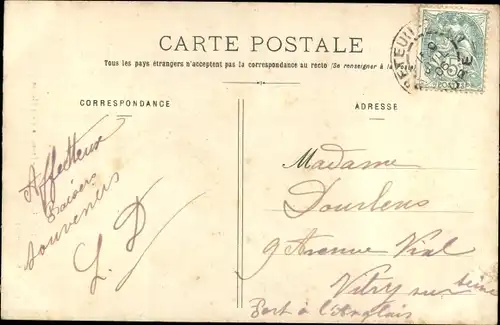 CARTE POSTALE
Tous les pays étrangers n'acceptent pas la correspondance au recto (Se renseigner à la
CORRESPONDANCE
ADRESSE
Affectueux
baisers
souvenirs
L. D
Madame
Dourlens
9 Avenue Vial
Vitry sur Seine
Port à l'Anglais